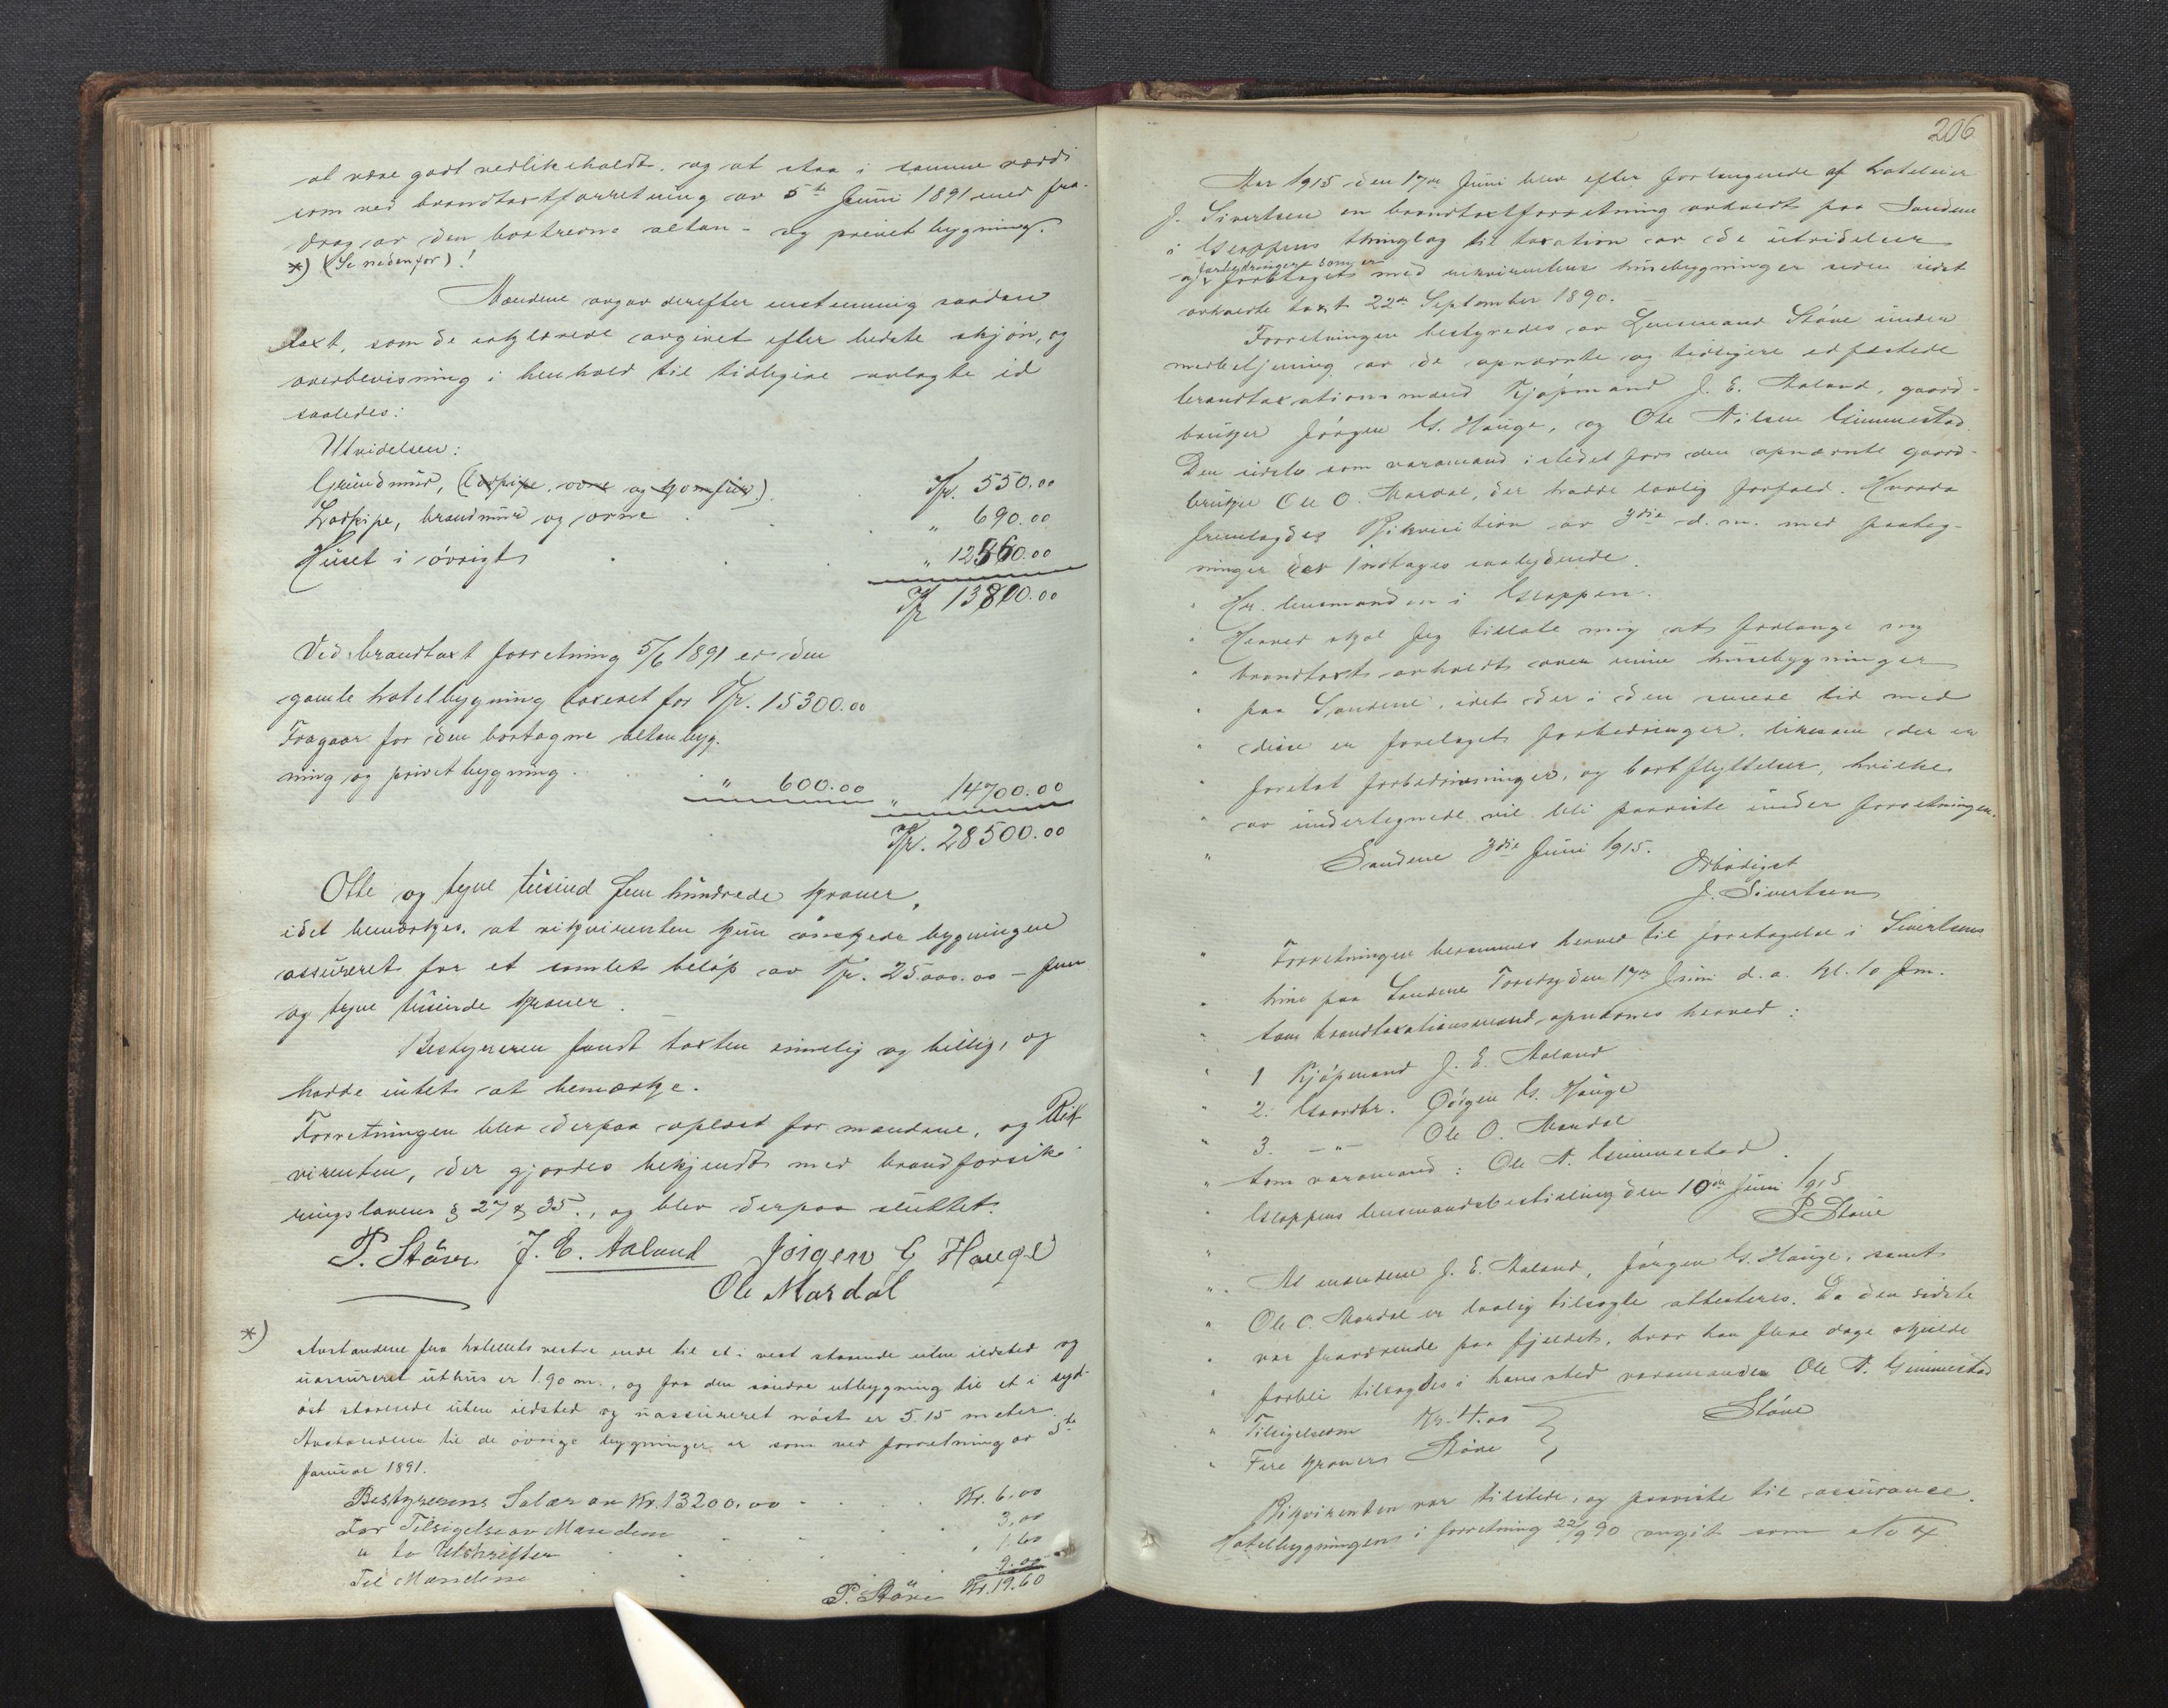 at være godt vedlikeholdt, og at staa i samme værdi
som ved brandtaxtforretning av 5te Juni 1891 med fra-
drag av den bortrevne altan- og privet bygning.
*) (Se nedenfor)!
Mændene avgav derefter enstemmig saadan
taxt, som de erklærede avgivet efter bedste skjøn, og
overbevisning i henhold til tidligere avlagte ed
saaledes:
Utvidelsen:
Grundmur, (lodpipe, ovne og komfur) . Kr. 550.00
Lodpipe, brandmur og ovne . . " 690.00
Huset i övrigt . . . " 12560.00
Kr 13800.00
Ved brandtaxt forretning 5/6 1891 er den
gamle hotelbygning taxeret for Kr. 15300.00
Fragaar for den borttagne altanbyg-
ning og privetbygning . . . " 600.00 " 14700.00
Kr. 28500.00
Otte og tyve tusind fem hundrede kroner,
idet bemærkes, at rekvirenten kun önskede bygningen
assureret for et samlet belöp av Kr. 25.000.00 – fem
og tyve tusinde kroner.
Bestyreren fandt taxten rimelig og billig, og
hadde intet at bemærke.
Forretningen blev derpaa oplæst for mændene, og Rek
virenten, der gjordes bekjendt med brandforsik-
ringslovens § 27 & 35., og blev derpaa sluttet.
P. Støve J. E. Aaland Jörgen G Hauge
Ole Mardal
*) Avstandene fra hotellets vestre ende til et i vest staaende uten ildsted og
uassureret uthus er 1.90 m., og fra den söndre utbygning til et i syd-
öst staaende uten ildsted og uassureret nöst er 5.15 meter.
Avstandene til de övrige bygninger er som ved forretning av 5te
Januar 1891.
Bestyrerens Salær av Kr. 13200.00 . . . Kr. 6.00
For Tilsigelse av Mændene . . . 3.00
" to Utskrifter . . . " 1.60
Til Mændene . . . 9.00
P. Støve Kr. 19.60
206
Aar 1915 den 17de Juni blev efter forlangende af hoteleier
J. Sivertsen en brandtaxtforretning avholdt paa Sandene
i Gloppens thinglag til taxation av de utvidelser
forbedringer som er
og foretaget med rekvirentens husebygninger siden sidst
avholdte taxt 22de September 1890.
Forretningen bestyredes av Lensmand Støve under
medbetjening av de opnævnte og tidligere edfæstede
brandtaxationsmænd Kjöpmand J. E. Aaland, gaard-
bruker Jörgen G. Hauge, og Ole Nilsen Gimmestad.
Den sidste som varamand istedet for den opnævnte gaard-
bruker Ole O. Mardal, der hadde lovlig forfald. Hvorda
fremlagdes Rikvisition av 3die d. m. med paateg-
ninger der indtages saalydende.
" Hr. lensmanden i Gloppen.
" Herved skal jeg tillate mig at forlange ny
" brandtaxt avholdt over mine husebygninger
" paa Sandene, idet der i den senere tid med
" disse er foretaget forbedringer, likesom der er
" foretat forbedringer, og bortflyttelser, hvilke
" av undertegnede vil bli paavist under forretningen.
" Sandene 3die Juni 1915.
Ærbödigst
J. Sivertsen
" Forretningen berammes herved til foretagelse i Sivertsens
" hus paa Sandene Torsdag den 17de Juni d. a. kl. 10 fm.
" Som brandtaxationsmænd opnævnes herved:
" 1 Kjöpmand J. E. Aaland
" 2. Gaardbr. Jörgen G. Hauge
" 3. – " – Ole O. Mardal
" Som varamand: Ole N. Gimmestad.
" Gloppens lensmandsbestilling den 10de Juni 1915
P. Støve
" At mændene J. E. Aaland, Jörgen G. Hauge, samt
" Ole O. Mardal er lovlig tilsagte attesteres. Da den sidste
" var fraværende paa fjeldet, hvor han flere dage skulde
" forbli tilsagdes i hans sted varamanden Ole N. Gimmestad
" Tilsigelsesm Kr. 4.00 Støve
" Fire kroner Støve
Rikvirenten var tilstede, og paaviste til assurance.
Hotelbygningen i forretning 22/9 90 angit som No